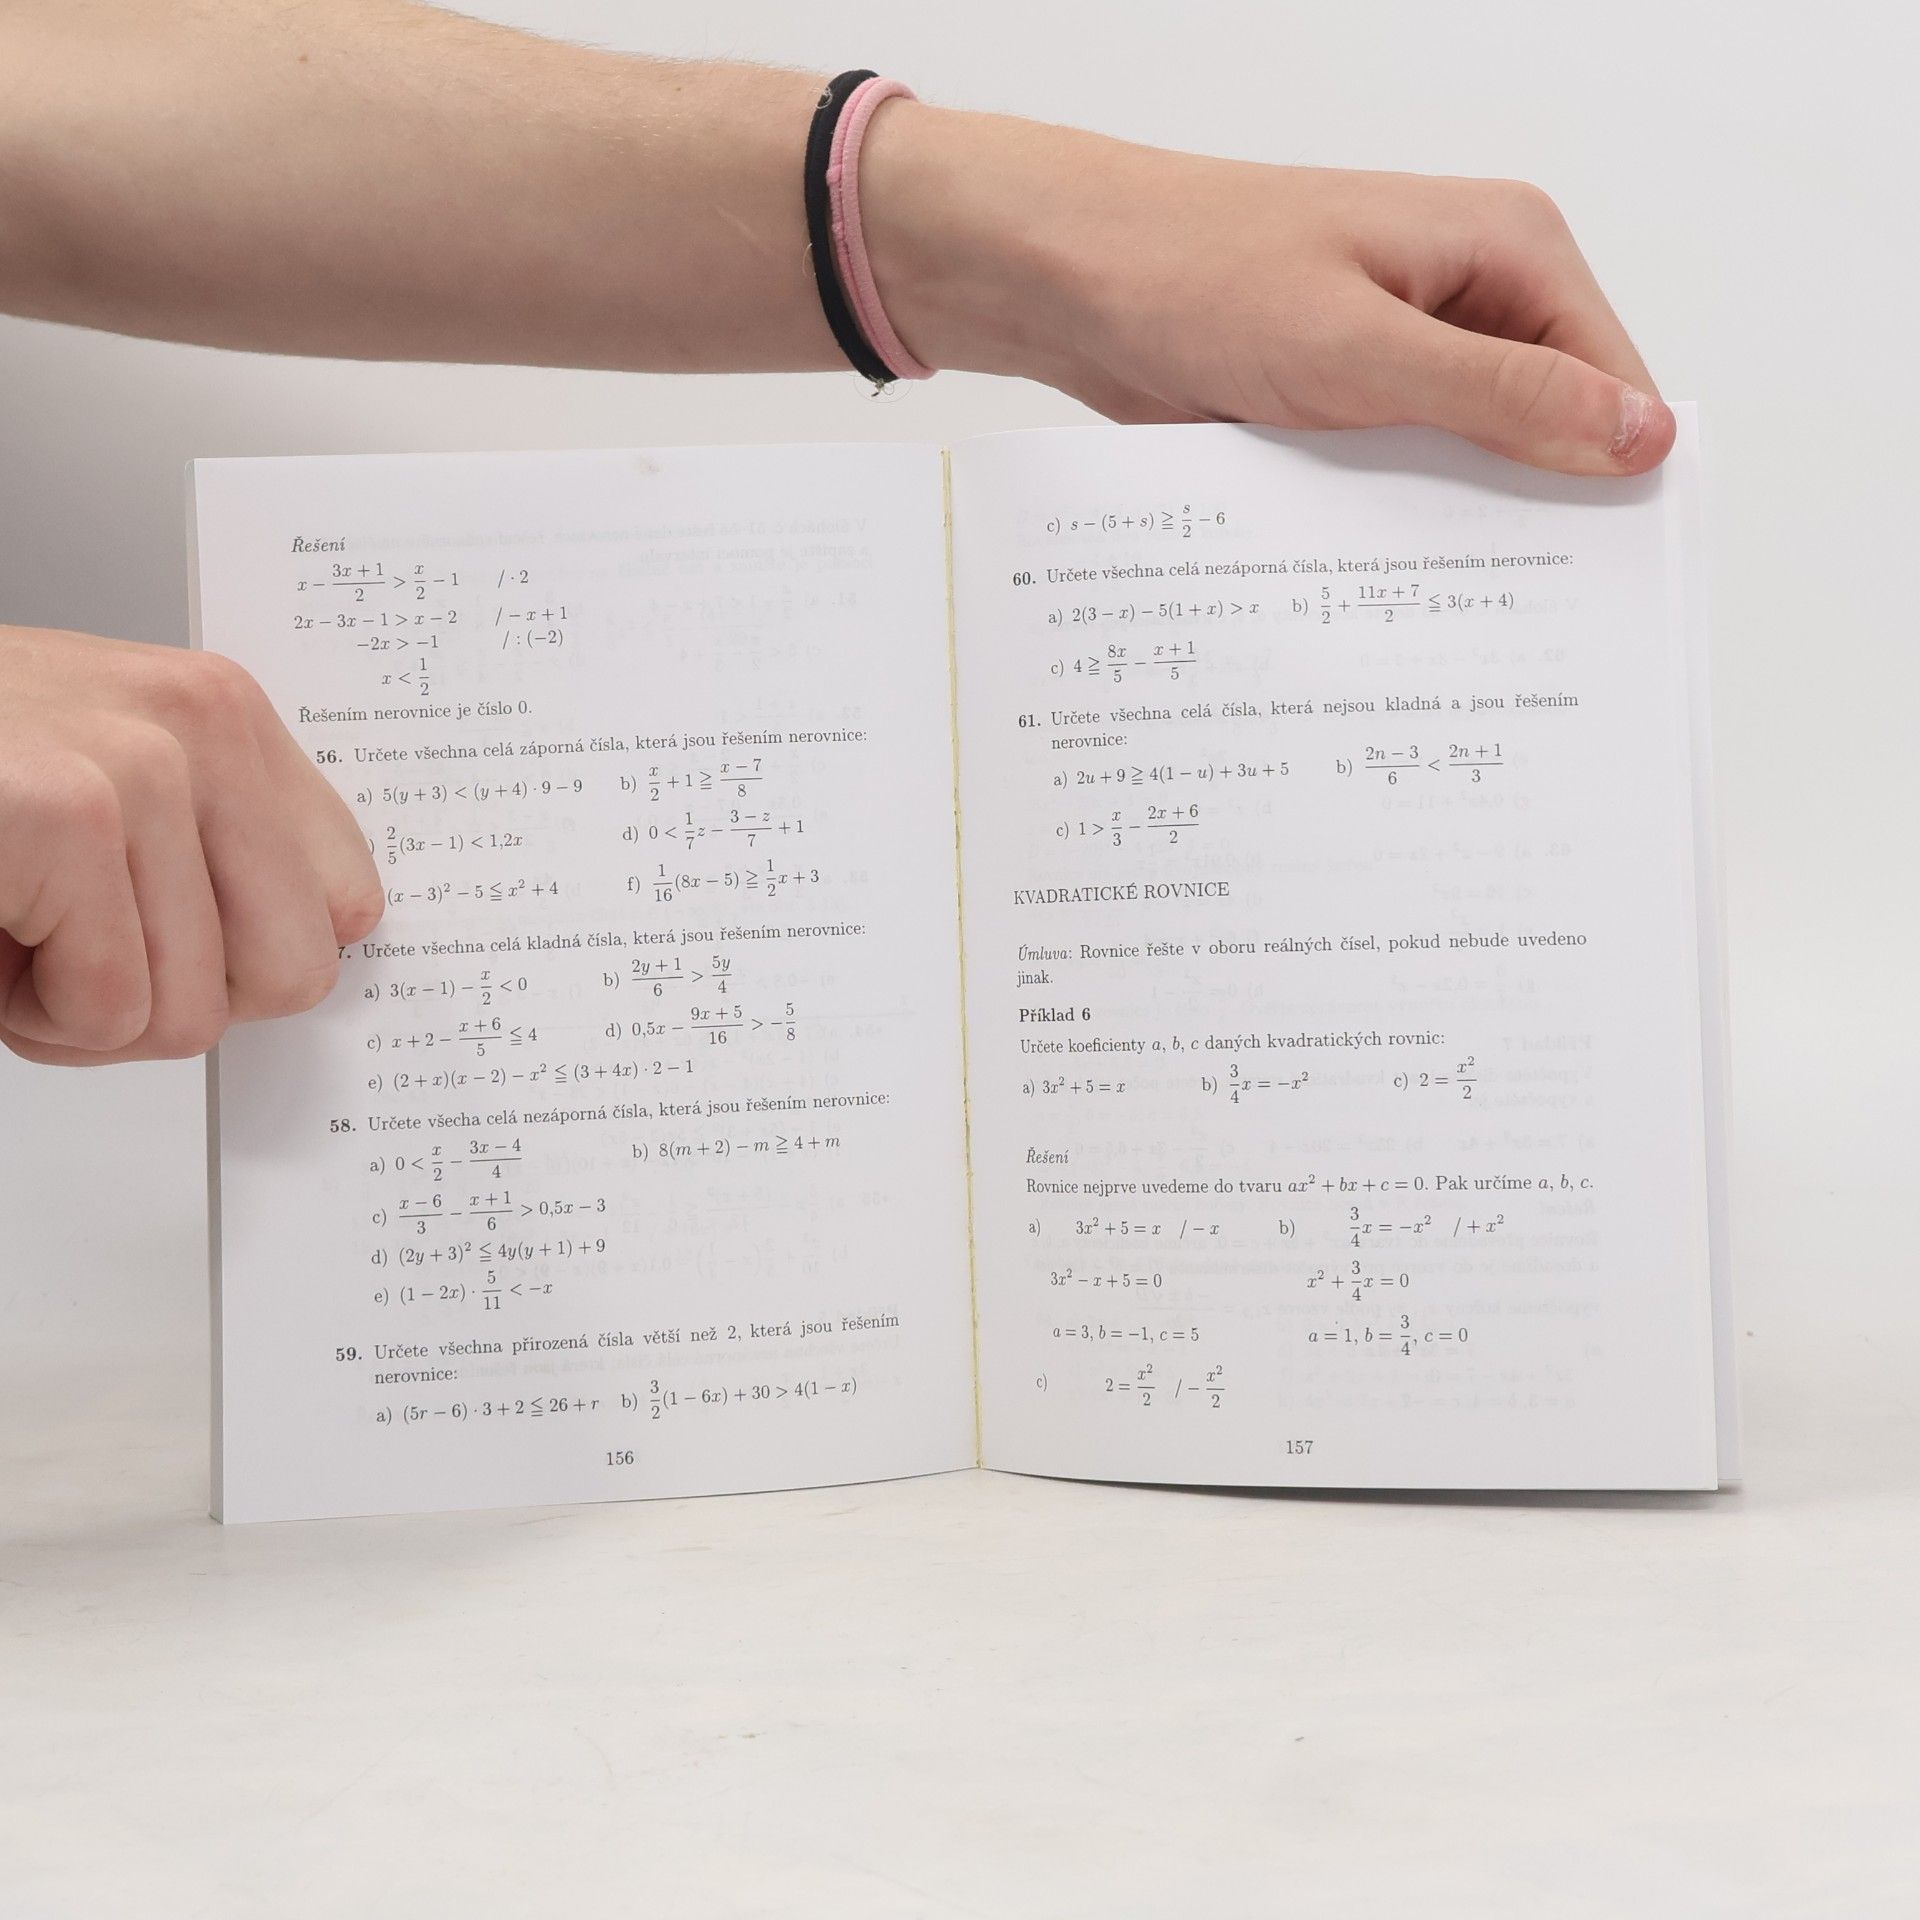 Řešení
x − (3x + 1)/2 > x/2 − 1 / · 2
2x − 3x − 1 > x − 2 / − x + 1
−2x > −1 / : (−2)
x < 1/2
Řešením nerovnice je číslo 0.
56. Určete všechna celá záporná čísla, která jsou řešením nerovnice:
a) 5(y + 3) < (y + 4) · 9 − 9 b) x/2 + 1 ≧ (x − 7)/8
) 2/5(3x − 1) < 1,2x d) 0 < 1/7z − (3 − z)/7 + 1
(x − 3)² − 5 ≦ x² + 4 f) 1/16(8x − 5) ≧ 1/2x + 3
7. Určete všechna celá kladná čísla, která jsou řešením nerovnice:
a) 3(x − 1) − x/2 < 0 b) (2y + 1)/6 > 5y/4
c) x + 2 − (x + 6)/5 ≦ 4 d) 0,5x − (9x + 5)/16 > −5/8
e) (2 + x)(x − 2) − x² ≦ (3 + 4x) · 2 − 1
58. Určete všecha celá nezáporná čísla, která jsou řešením nerovnice:
a) 0 < x/2 − (3x − 4)/4 b) 8(m + 2) − m ≧ 4 + m
c) (x − 6)/3 − (x + 1)/6 > 0,5x − 3
d) (2y + 3)² ≦ 4y(y + 1) + 9
e) (1 − 2x) · 5/11 < −x
59. Určete všechna přirozená čísla větší než 2, která jsou řešením
nerovnice:
a) (5r − 6) · 3 + 2 ≦ 26 + r b) 3/2(1 − 6x) + 30 > 4(1 − x)
156
c) s − (5 + s) ≧ s/2 − 6
60. Určete všechna celá nezáporná čísla, která jsou řešením nerovnice:
a) 2(3 − x) − 5(1 + x) > x b) 5/2 + (11x + 7)/2 ≦ 3(x + 4)
c) 4 ≧ 8x/5 − (x + 1)/5
61. Určete všechna celá čísla, která nejsou kladná a jsou řešením
nerovnice:
a) 2u + 9 ≧ 4(1 − u) + 3u + 5 b) (2n − 3)/6 < (2n + 1)/3
c) 1 > x/3 − (2x + 6)/2
KVADRATICKÉ ROVNICE
Úmluva: Rovnice řešte v oboru reálných čísel, pokud nebude uvedeno
jinak.
Příklad 6
Určete koeficienty a, b, c daných kvadratických rovnic:
a) 3x² + 5 = x b) 3/4x = −x² c) 2 = x²/2
Řešení
Rovnice nejprve uvedeme do tvaru ax² + bx + c = 0. Pak určíme a, b, c.
a) 3x² + 5 = x / − x b) 3/4x = −x² / + x²
3x² − x + 5 = 0 x² + 3/4x = 0
a = 3, b = −1, c = 5 a = 1, b = 3/4, c = 0
c) 2 = x²/2 / − x²/2
157